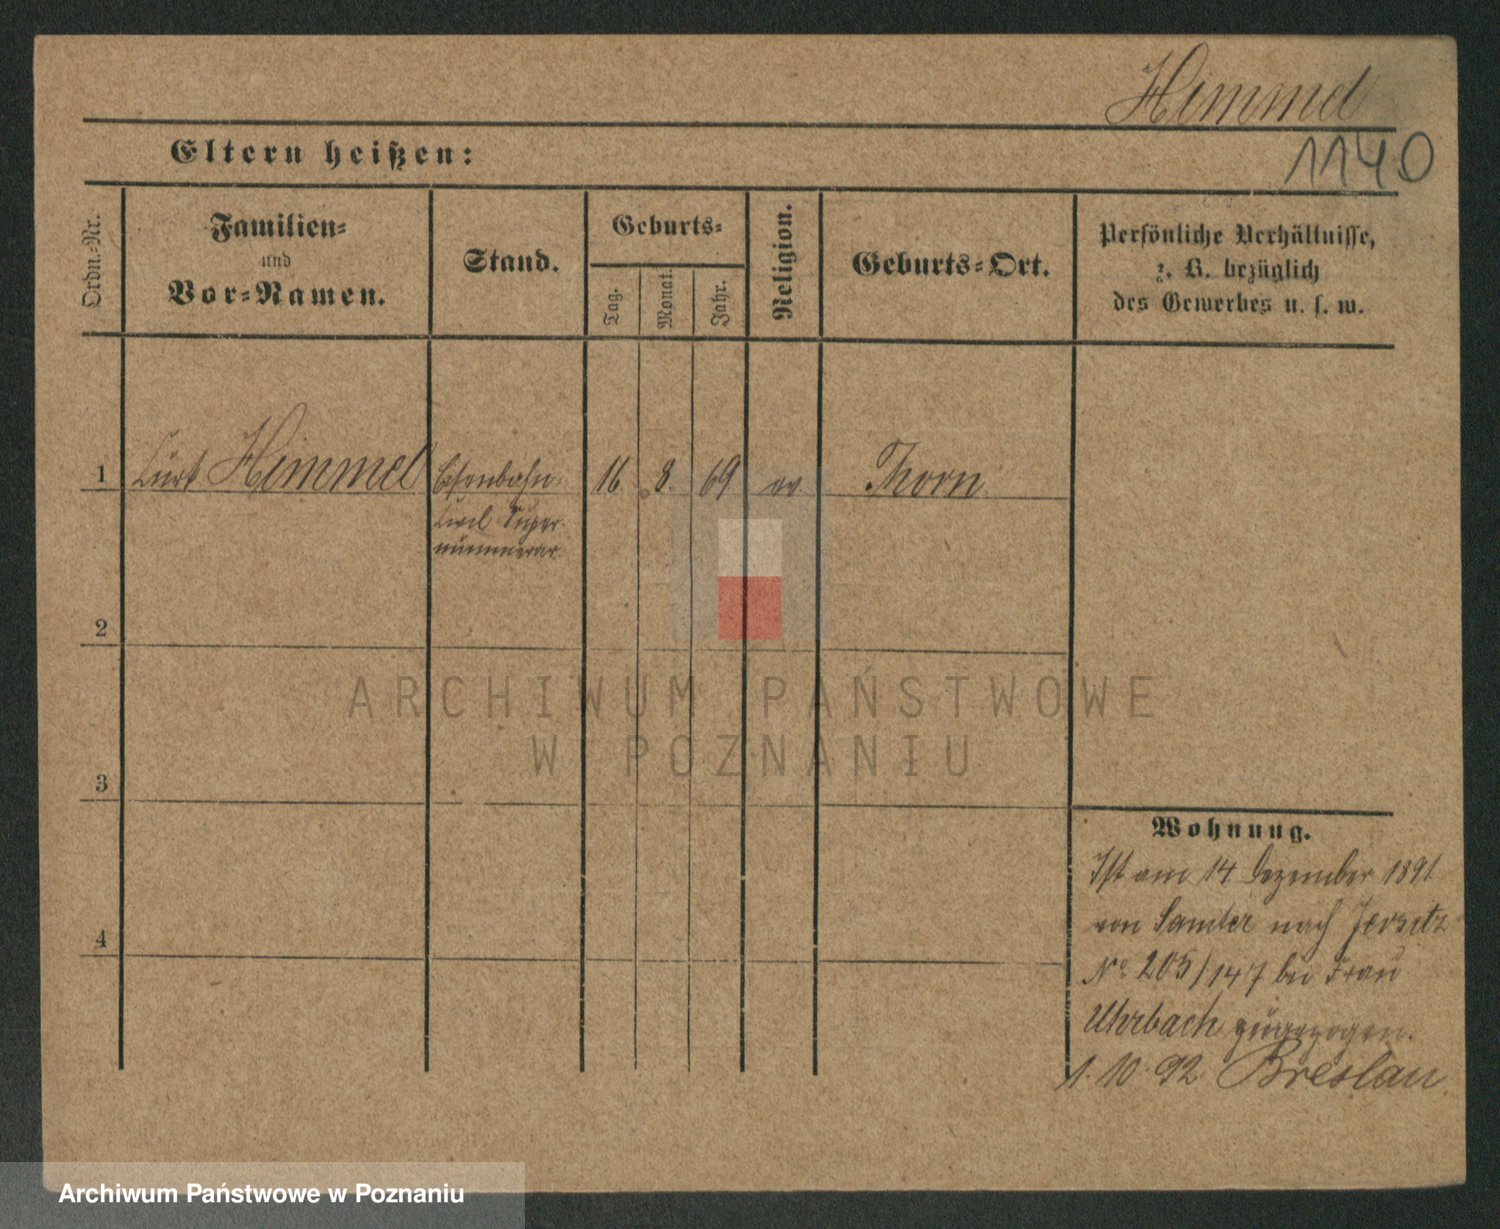 Himmel
1140
Eltern heißen:
Ordn.-Nr.
Familien-
und
Vor-Namen.
Stand.
Geburts-
Tag.
Monat.
Jahr.
Religion.
Geburts-Ort.
Persönliche Verhältnisse,
z. B. bezüglich
des Gewerbes u. s. w.
1 Curt Himmel Eisenbahn- 16. 8. 69 ev. Thorn.
Civil Super-
numerar
2
3
4
Wohnung.
Ist am 14 Dezember 1891
von Samter nach Jersitz
No 205/147 bei Frau
Uhrbach zugezogen.
1. 10. 92. Breslau
ARCHIWUM PAŃSTWOWE
W POZNANIU
Archiwum Państwowe w Poznaniu